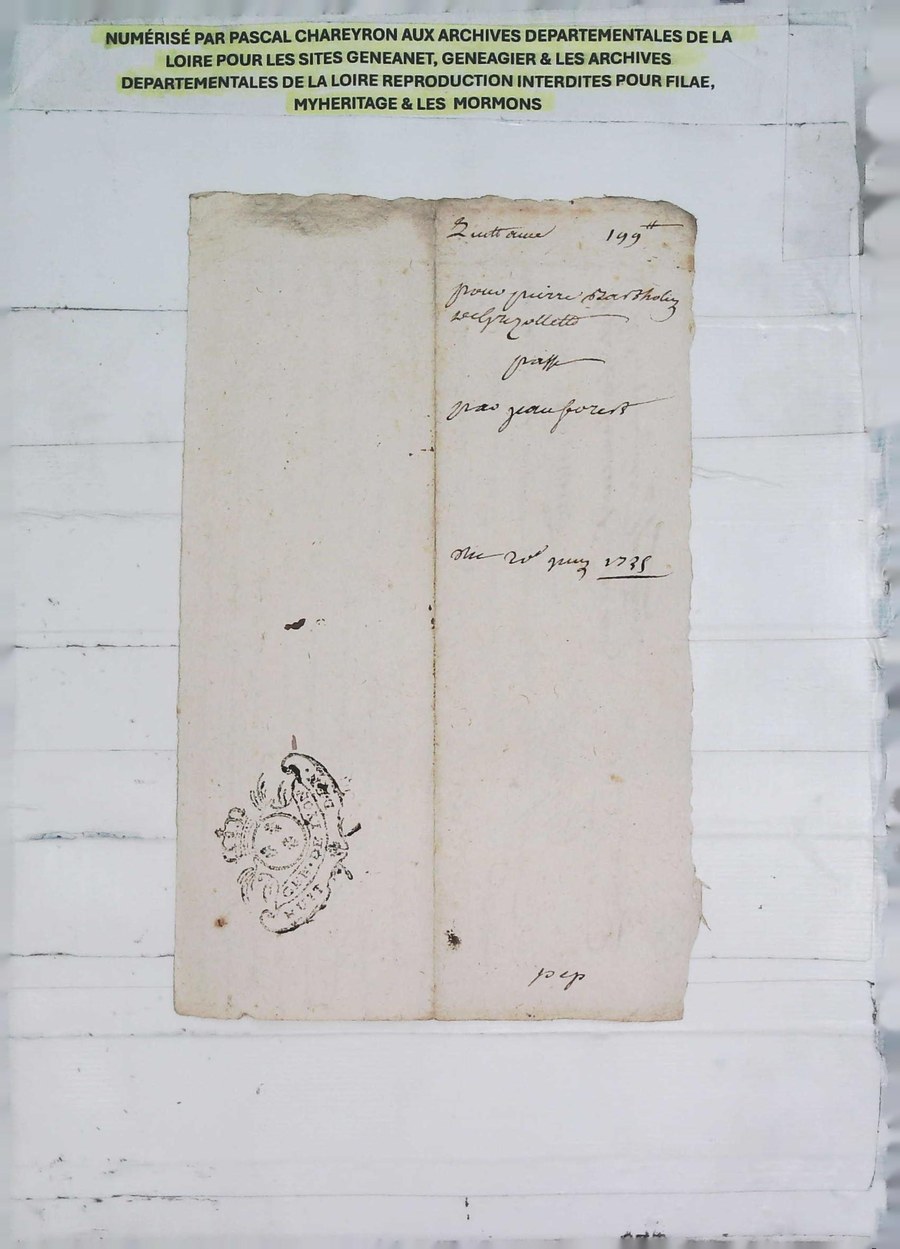 NUMÉRISÉ PAR PASCAL CHAREYRON AUX ARCHIVES DEPARTEMENTALES DE LA
LOIRE POUR LES SITES GENEANET, GENEAGIER & LES ARCHIVES
DEPARTEMENTALES DE LA LOIRE REPRODUCTION INTERDITES POUR FILAE,
MYHERITAGE & LES MORMONS
Quittance 199tt
pour pierre Bartholin
passe
par jean forest
du 20e juin 1735
pcp
GEN. DE LYON
HUIT